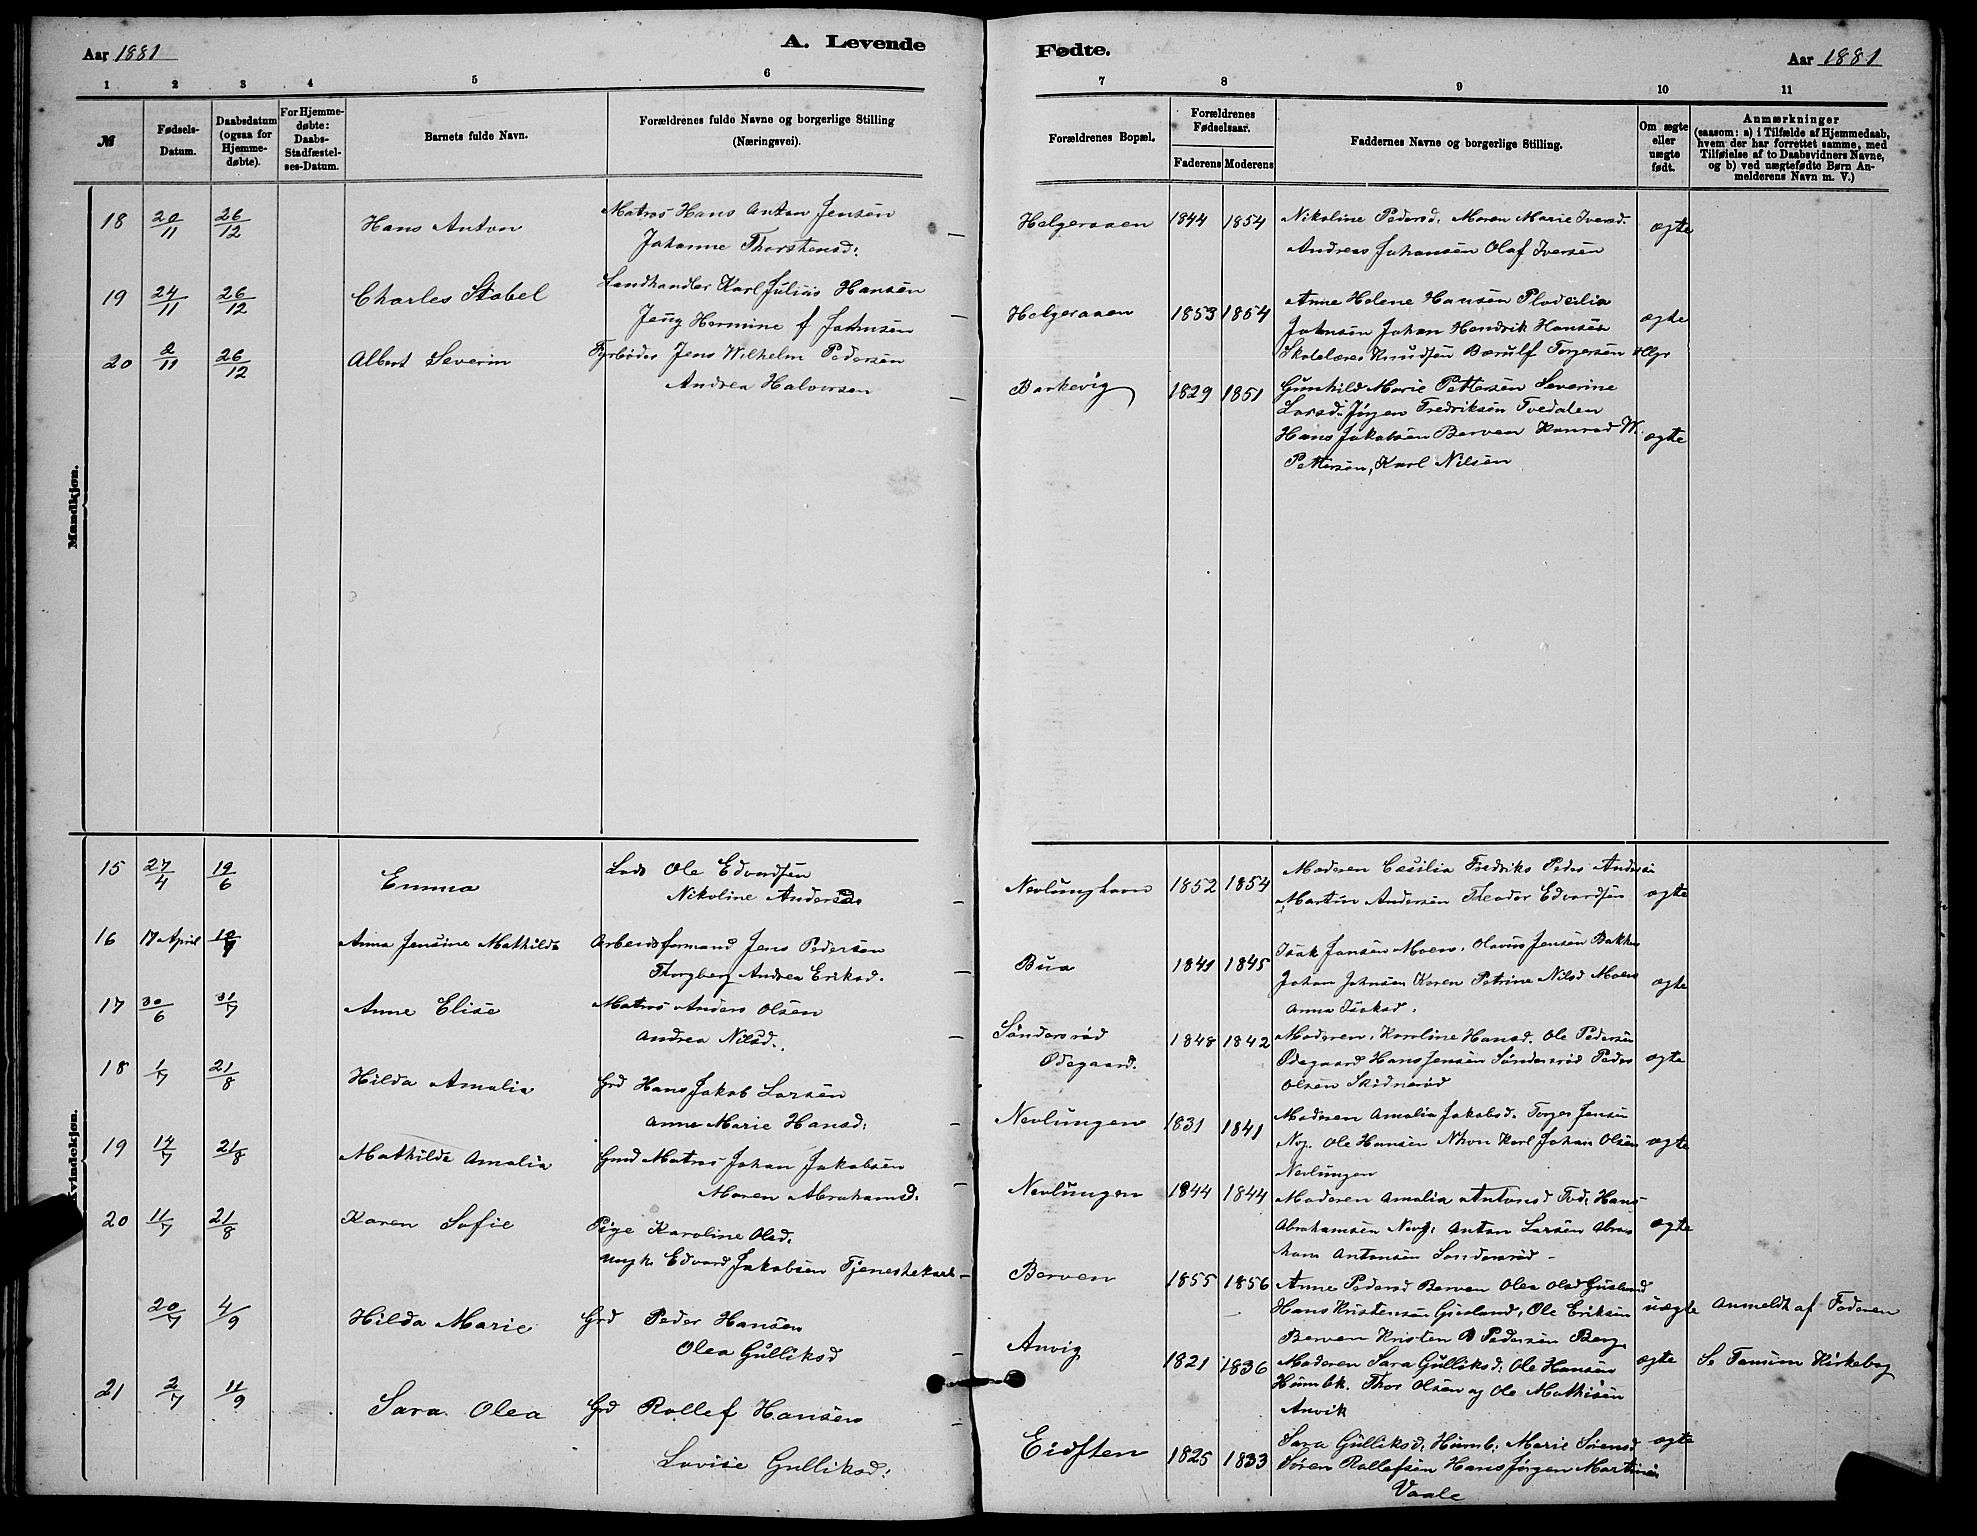 Aar 1881
A. Levende
1 2 3 4 5 6
№
Fødsels-Datum.
Daabsdatum (ogsaa for Hjemme-døbte).
For Hjemme-døbte: Daabs-Stadfæstel-ses-Datum.
Barnets fulde Navn.
Forældrenes fulde Navne og borgerlige Stilling
(Næringsvei).
Mandkjøn.
18 20/11 26/12 Hans Anton Matros Hans Anton Jensen
Johanne Thorstensd:
19 24/11 26/12 Charles Stabel Landhandler Karl Julius Hansen
Jeny Hermine f Johnsen
20 2/11 26/12 Albert Severin Fyrbøder Jens Wilhelm Pedersen
Andrea Halvorsen
Kvindekjøn.
15 27/4 19/6 Emma Lods Ole Edvardsen
Nikoline Andersd
16 17 April Anna Jensine Mathilde Arbeidsformand Jens Pedersen
Thorgberg Andrea Eriksd.
17 30/6 31/7 Anne Elise Matros Anders Olsen
Andrea Nilsd.
18 1/7 21/8 Hilda Amalia Grd Hans Jakob Larsen
Anne Marie Hansd:
19 14/7 21/8 Mathilde Amalia Gmd Matros Johan Jakobsen
Maren Abrahamsd:
20 11/7 21/8 Karen Sofie Pige Karoline Olsd.
Ungk. Edvard Jakobsen Tjenestekarl
20/7 4/9 Hilda Marie Grd Peder Hansen
Olea Gulliksd
21 2/7 11/9 Sara Olea Grd Rollef Hansen
Lovise Gulliksd:
Fødte.
Aar 1881
7 8 9 10 11
Forældrenes Bopæl.
Forældrenes Fødselsaar.
Faderens Moderens
Faddernes Navne og borgerlige Stilling.
Om ægte eller uægte født.
Anmærkninger
(saasom: a) i Tilfælde af Hjemmedaab,
hvem der har forrettet samme, med
Tilføielse af to Daabsvidners Navne,
og b) ved uægtefødte Børn An-
melderens Navn m. V.)
Helgeraaen 1844 1854 Nikoline Pedersd. Maren Marie Iversd. ægte
Andreas Johansen Olaf Iversen
Helgeraaen 1853 1854 Anne Helene Hansen
Johnsen Johan Hendrik Hansen ægte
Skolelærer Knudsen Bærulf Torgersen Hlgr
Barkevig 1829 1851 Gunhild Marie Pettersen Severine
Larsd. Jørgen Fredriksen Tvedalen
Hans Jakobsen Berven Konrad W. ægte
Pettersen, Karl Nilsen
Nevlunghavn 1852 1854 Moderen Cecilia Fredriks Peder Andersen
Martin Andersen Theodor Edvardsen ægte
Bua 1841 1845 Isak Jansen Moen. Olavus Jensen Bakken
Johan Johnsen Karen Petrine Nilsd Moen ægte
Anna Isaksd.
Søndersrød Ødegaard. 1848 1842 Moderen, Karoline Hansd. Ole Pedersen
Ødegaard Hans Jensen Søndersrød Peder ægte
Olsen Skidnerød
Nevlungen 1831 1841 Moderen Amalia Jakobsd. Torger Jensen
Nvg. Ole Hansen Nhvn Karl Johan Olsen ægte
Nevlungen
Nevlungen 1844 1844 Moderen Amalia Antonsd Tvd. Hans
Abrahamsen Nevg. Anton Larsen Abra- ægte
ham Antonsen Søndersrød
Berven 1855 1856 Anne Pedersd Berven Olea Olsd Gusland
Hans Kristensen Gusland, Ole Eriksen uægte Anmeldt af Faderen
Berven Kristen B Pedersen Berg
Anvig 1821 1836 Moderen Sara Gulliksd: Ole Hansen ægte Se Tanum Kirkebog
Humbk. Thor Olsen og Ole Mathisen
Anvik
Eidsten 1825 1833 Sara Gulliksd: Humb: Marie Sørensd ægte
Søren Rollefsen Hans Jørgen Martinsen
Vaale